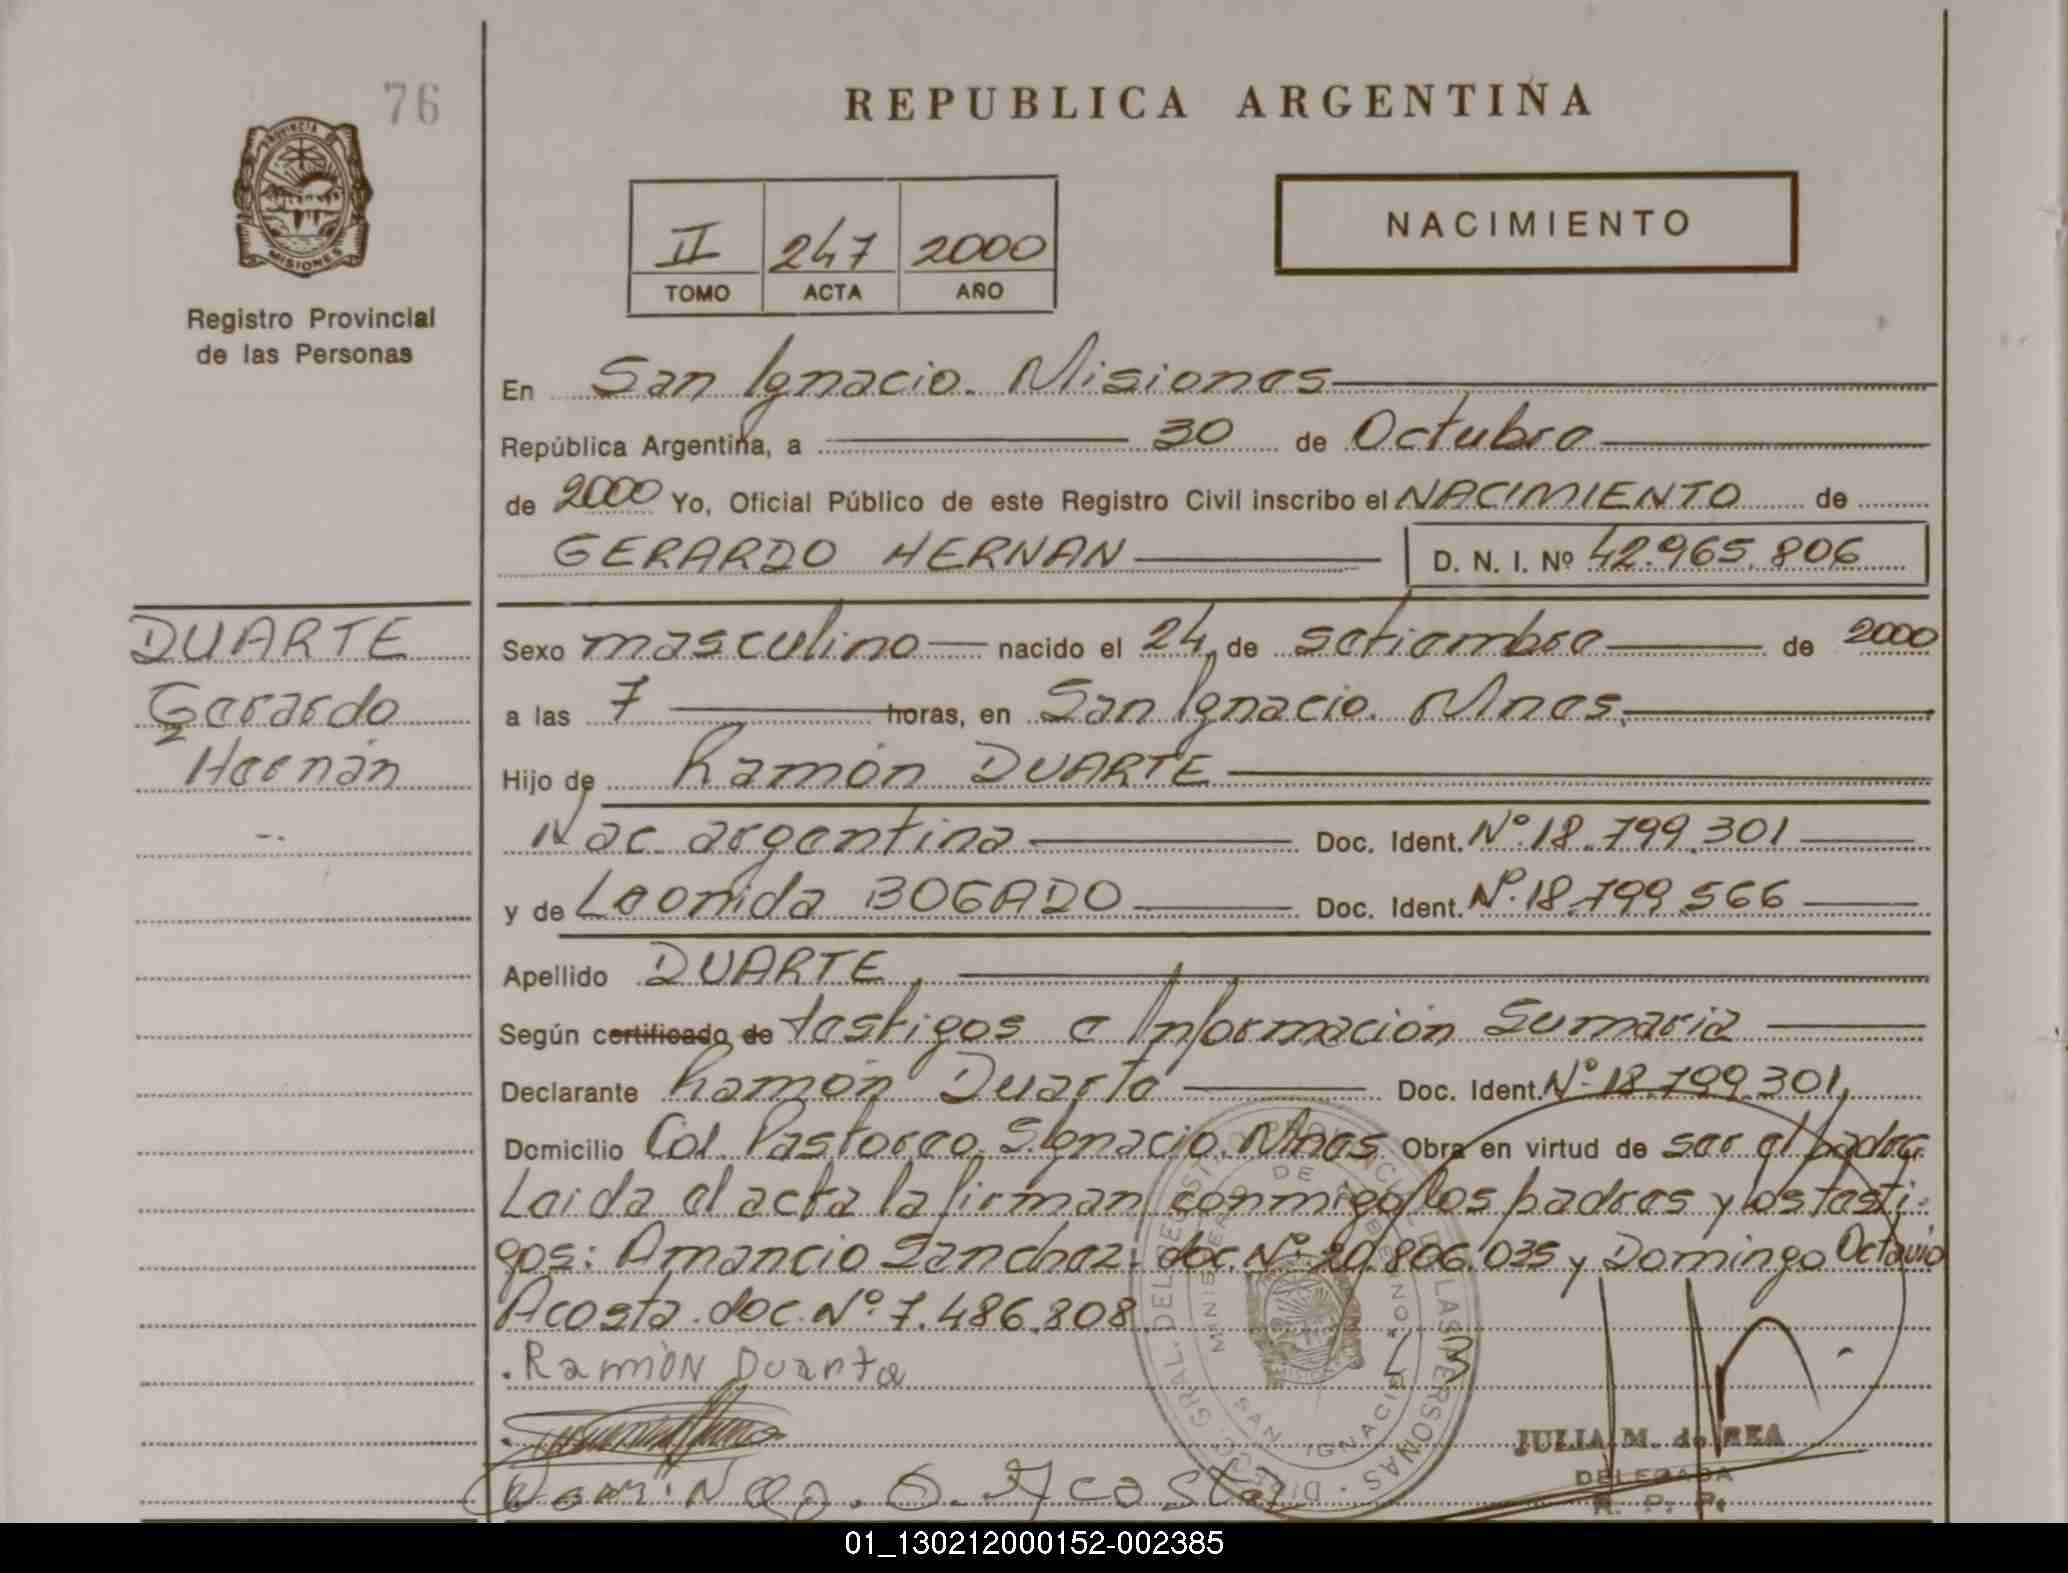 76
REPUBLICA ARGENTINA
PROVINCIA DE
MISIONES
Registro Provincial
de las Personas
II 247 2000
TOMO ACTA AÑO
NACIMIENTO
En San Ignacio. Misiones
República Argentina, a 30 de Octubre
de 2000 Yo, Oficial Público de este Registro Civil inscribo el NACIMIENTO de
GERARDO HERNAN D. N. I. Nº 42.965.806
DUARTE
Gerardo
Hernán
Sexo masculino nacido el 24 de setiembre de 2000
a las 7 horas, en San Ignacio. Mnes.
Hijo de Ramón DUARTE
Nac. argentina Doc. Ident. Nº 18.799.301
y de Leonida BOGADO Doc. Ident. Nº 18.799.566
Apellido DUARTE
Según certificado de testigos e Información Sumaria
Declarante Ramón Duarte Doc. Ident. Nº 18.799.301
Domicilio Col. Pastoreo. S. Ignacio. Mnes Obra en virtud de ser el padre
Leida el acta la firman conmigo los padres y los testi-
gos: Amancio Sanchez: doc Nº 20.806.035 y Domingo Octavio
Acosta. doc. Nº 7.486.808.
Ramón Duarte
L B
Domingo. O. Acosta
DIREC. GRAL. DEL REGISTRO PROVINCIAL DE LAS PERSONAS
MINISTERIO DE GOBIERNO
SAN IGNACIO
JULIA M. de REA
DELEGADA
R. P. P.
01_130212000152-002385